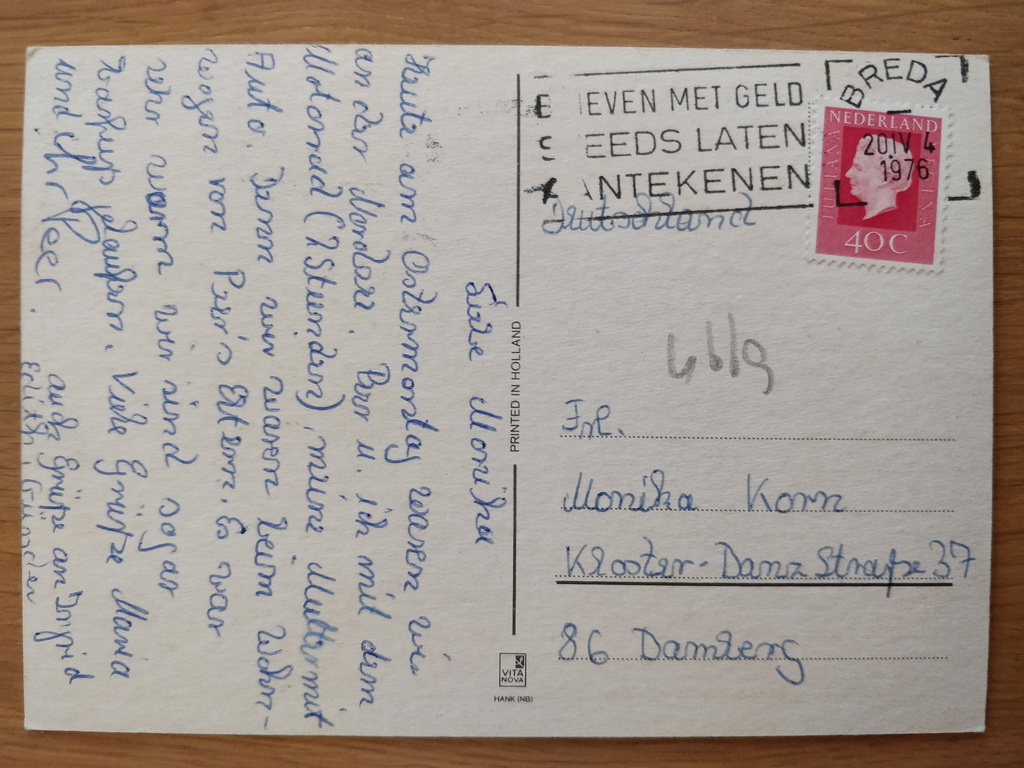 Liebe Monika
Heute am Ostermontag waren wir
an der Nordsee. Peer u. ich mit dem
Motorrad (2 Stunden), meine Mutter mit
Auto. Dann wir waren beim Wohn-
wagen von Peer's Eltern. Es war
sehr warm wir sind sogar
barfuß gelaufen. Viele Grüße Maria
und ihr Peer. auch Grüße an Ingrid
Edith, Günder
PRINTED IN HOLLAND
VITA
NOVA
HANK (NB)
B IEVEN MET GELD
S EEDS LATEN
ANTEKENEN
BREDA
20 IV 4
1976
NEDERLAND
JULIANA REGINA
40 C
Deutschland
Frl.
Monika Korn
Kloster-Banz Straße 37
86 Bamberg